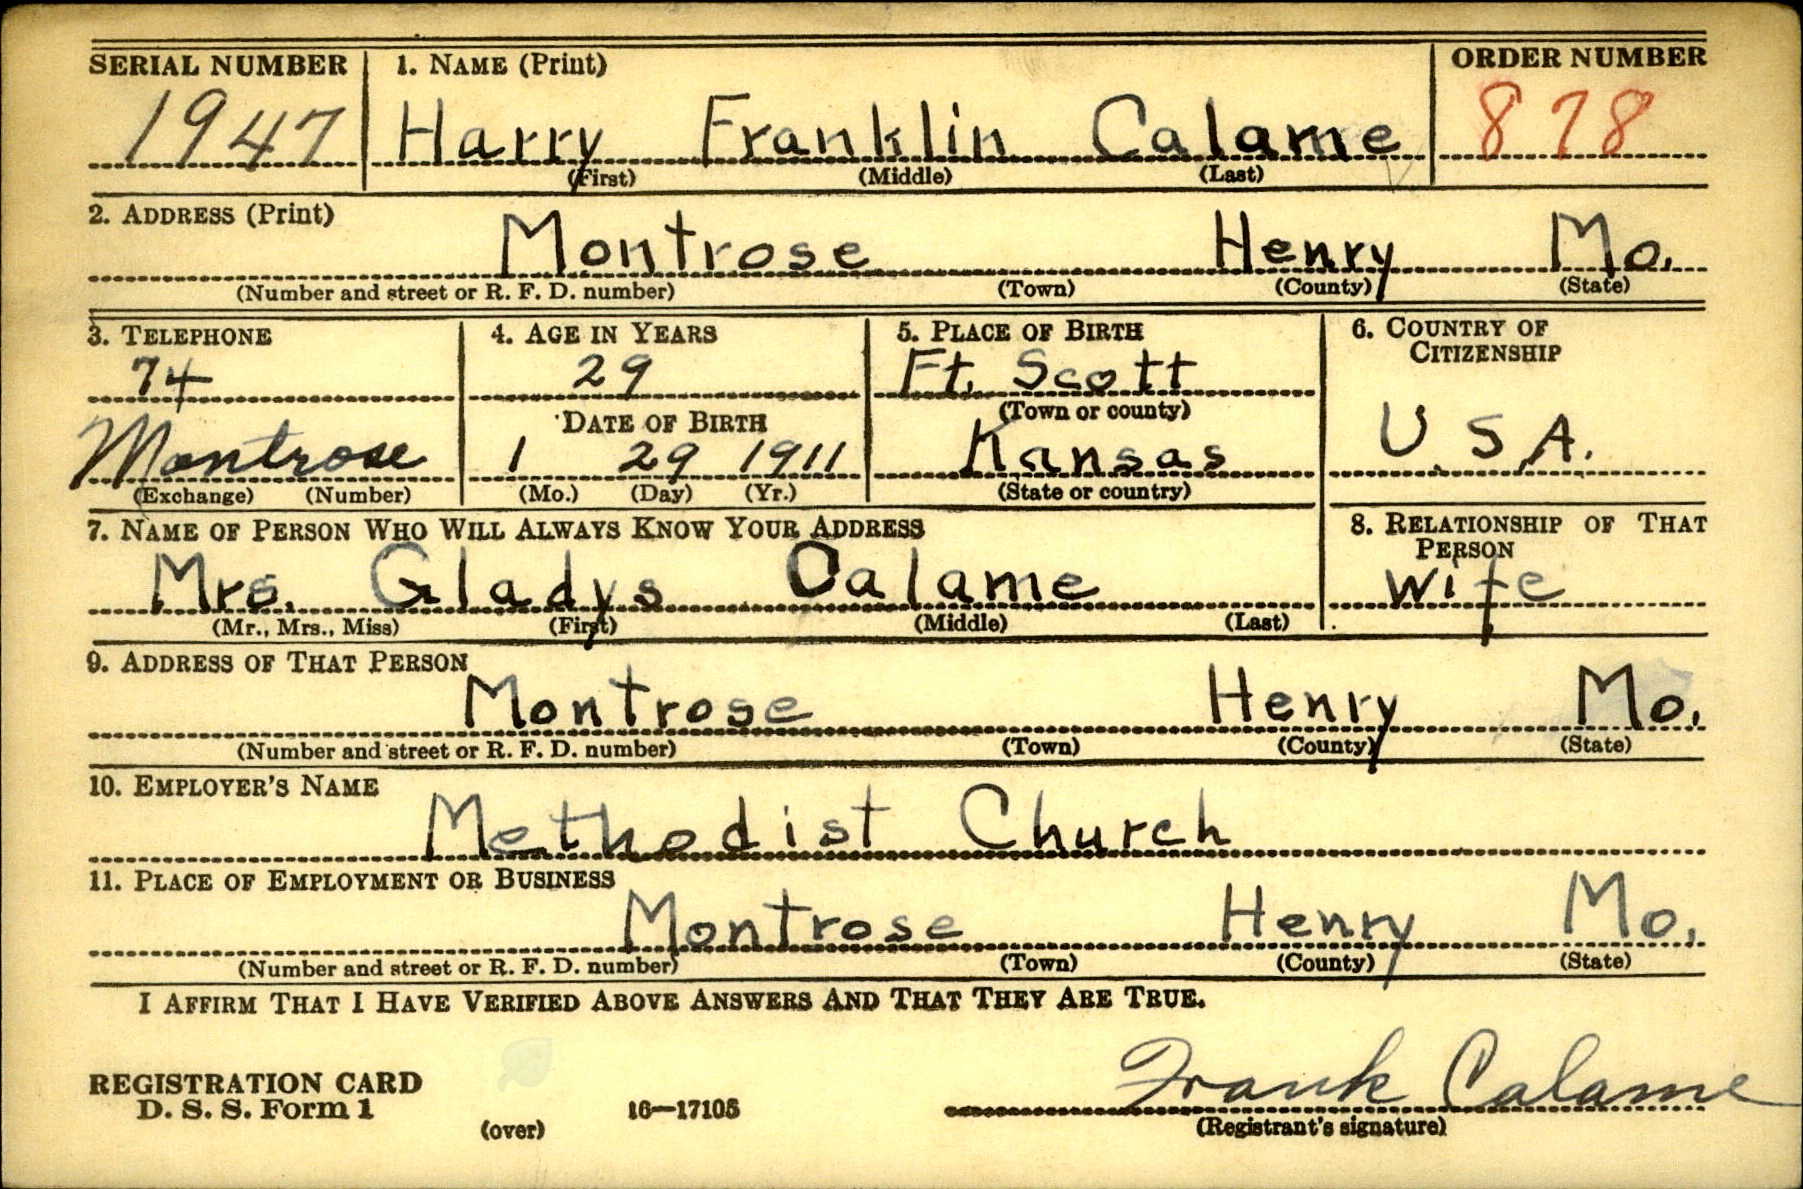 SERIAL NUMBER 1. NAME (Print) ORDER NUMBER
1947 Harry Franklin Calame 878
(First) (Middle) (Last)
2. ADDRESS (Print)
Montrose Henry Mo.
(Number and street or R. F. D. number) (Town) (County) (State)
3. TELEPHONE 4. AGE IN YEARS 5. PLACE OF BIRTH 6. COUNTRY OF CITIZENSHIP
74 29 Ft. Scott
DATE OF BIRTH (Town or county) U.S.A.
Montrose 1 29 1911 Kansas
(Exchange) (Number) (Mo.) (Day) (Yr.) (State or country)
7. NAME OF PERSON WHO WILL ALWAYS KNOW YOUR ADDRESS 8. RELATIONSHIP OF THAT PERSON
Mrs. Gladys Calame wife
(Mr., Mrs., Miss) (First) (Middle) (Last)
9. ADDRESS OF THAT PERSON
Montrose Henry Mo.
(Number and street or R. F. D. number) (Town) (County) (State)
10. EMPLOYER'S NAME
Methodist Church
11. PLACE OF EMPLOYMENT OR BUSINESS
Montrose Henry Mo.
(Number and street or R. F. D. number) (Town) (County) (State)
I AFFIRM THAT I HAVE VERIFIED ABOVE ANSWERS AND THAT THEY ARE TRUE.
REGISTRATION CARD Frank Calame
D. S. S. Form 1 16—17105
(over) (Registrant's signature)